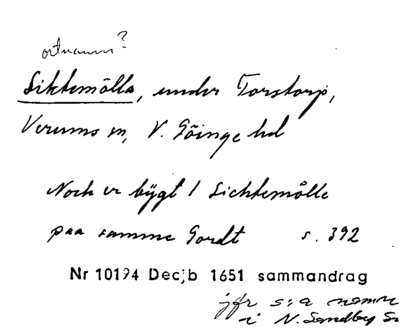 ortnamn?
Siktemölla, under Torstorp,
Verums sn, V. Göinge hd
Noch er bÿgt 1 Sichtemølle
paa samme Gordt s. 392
Nr 10194 Decjb 1651 sammandrag
jfr s:a namn
i N. Sandby Sn